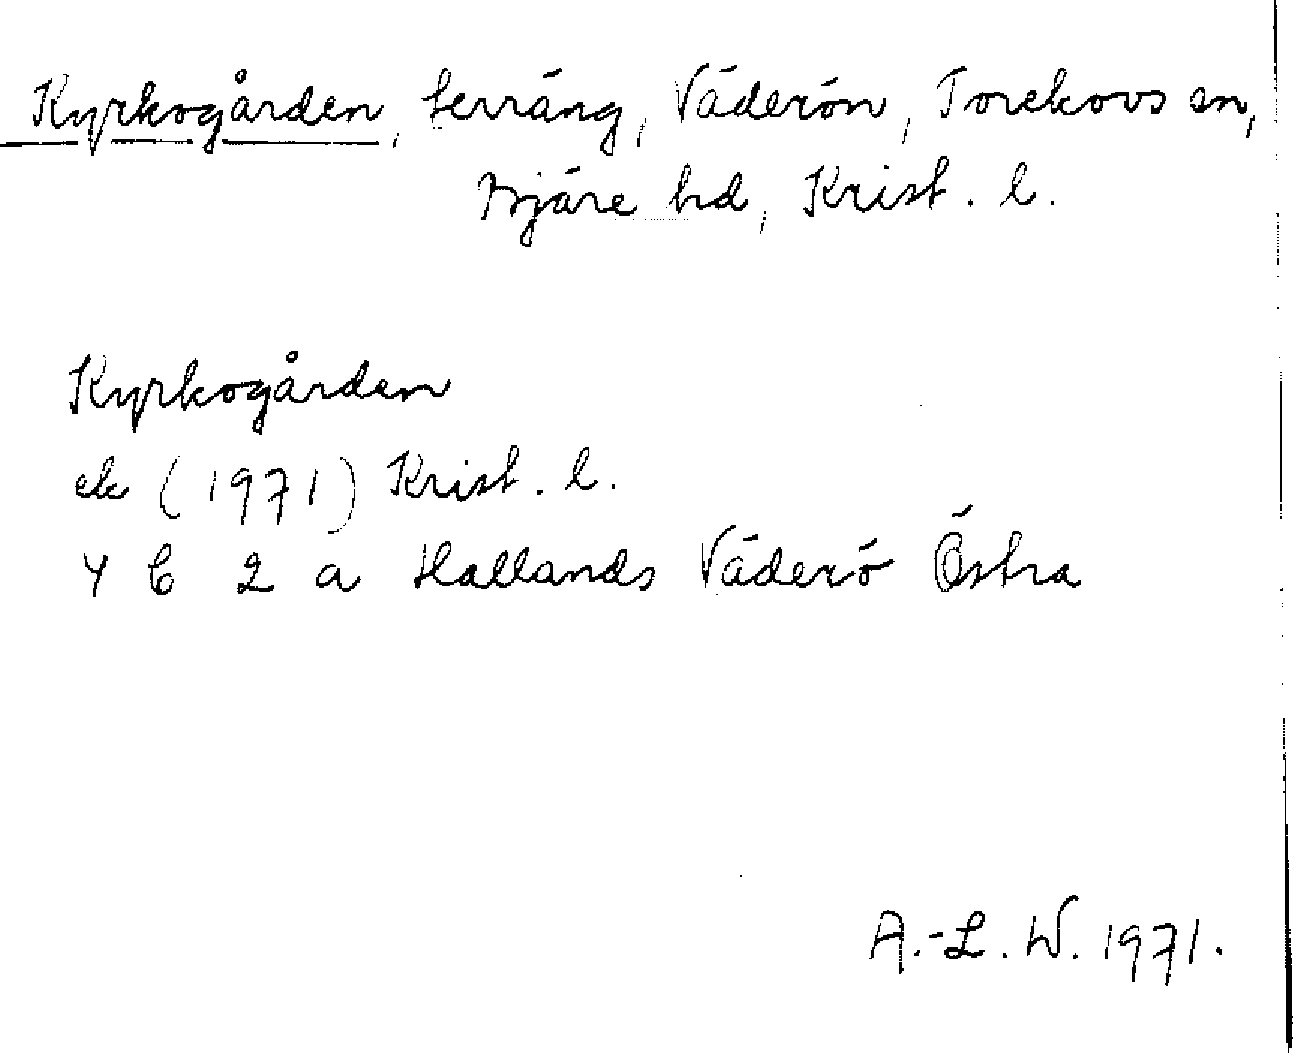 Kyrkogården, terräng, Väderön, Torekovs sn,
Bjäre hd, Krist. l.
Kyrkogården
ek (1971) Krist. l.
4 C 2 a Hallands Väderö Östra
A.-L. W. 1971.